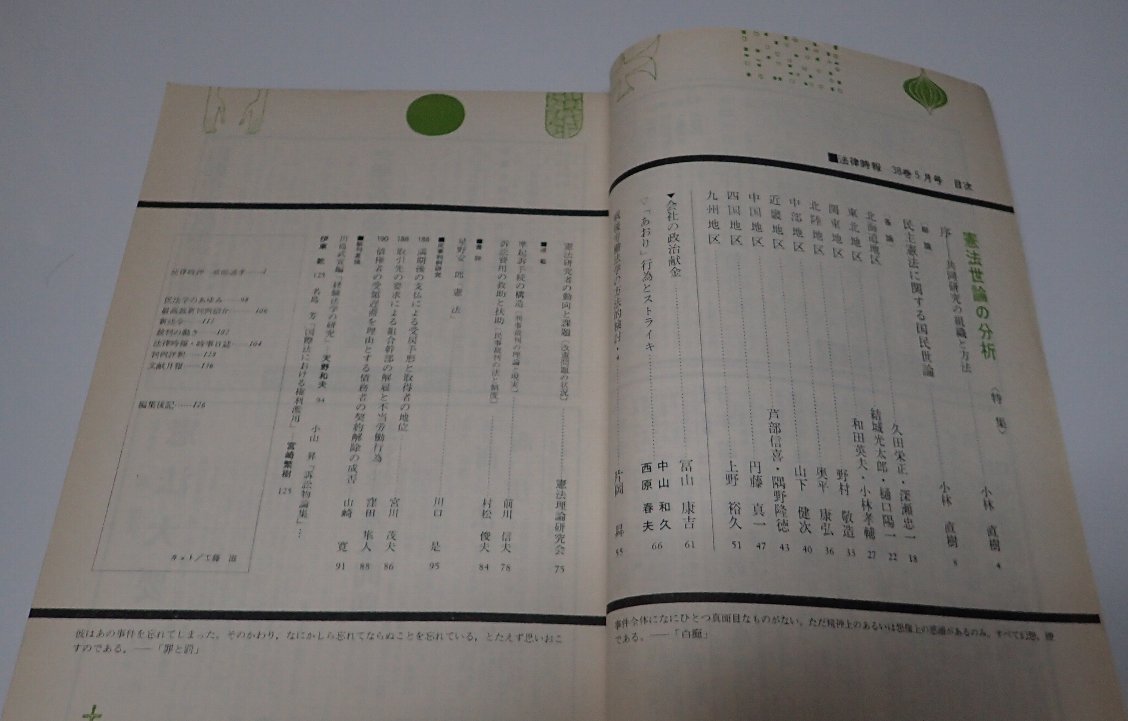 ■法律時報 38巻5月号 目次
憲法世論の分析〈特集〉
序――共同研究の組織と方法 小林 直樹 4
総論
民主憲法に関する国民世論 小林 直樹 8
各論
北海道地区 久田栄正・深瀬忠一 18
東北地区 結城光太郎・樋口陽一 22
関東地区 和田英夫・小林孝輔 27
北陸地区 野村 敬造 33
中部地区 奥平 康弘 36
近畿地区 山下 健次 40
中国地区 芦部信喜・隅野隆徳 43
四国地区 円藤 真一 47
九州地区 上野 裕久 51
▼会社の政治献金 富山 康吉 61
▽「あおり」行為とストライキ 中山 和久 西原 春夫 66
片岡 昻 55
憲法研究者の動向と課題(改憲問題の状況) 憲法理論研究会 75
準起訴手続の構造(刑事裁判の理論と現実) 前川 信夫 78
訴訟費用の救助と扶助(民事裁判の法と制度) 村松 俊夫 84
■書評
星野安三郎 憲法 川口 是 95
188 満期後の支払による受戻手形と取得者の地位 宮川 茂夫 86
取引先の要求による組合幹部の解雇と不当労働行為 窪田 隼人 88
190 債権者の受領遅滞を理由とする債務者の契約解除の成否 山崎 寛 91
川島武宜編「経験法学の研究」 天野和夫 94
小山 昇「訴訟物論集」…
伊東 乾 125 名島 芳「国際法における権利濫用」 宮崎繁樹 125
法律時評 4
民法学のあゆみ……98
最高裁新判例紹介……106
新法令……111
裁判の動き……102
法律時報・時事日誌……104
判例評釈……123
文献月報……136
編集後記……126
カット/工藤
事件全体になにひとつ真面目なものがない。ただ精神上のあるいは想像上の悪魔があるのみ。すべて幻想、
である。――「白痴」
彼はあの事件を忘れてしまった。そのかわり、なにかしら忘れてならぬことを忘れている、とたえず思いおこ
すのである。――「罪と罰」